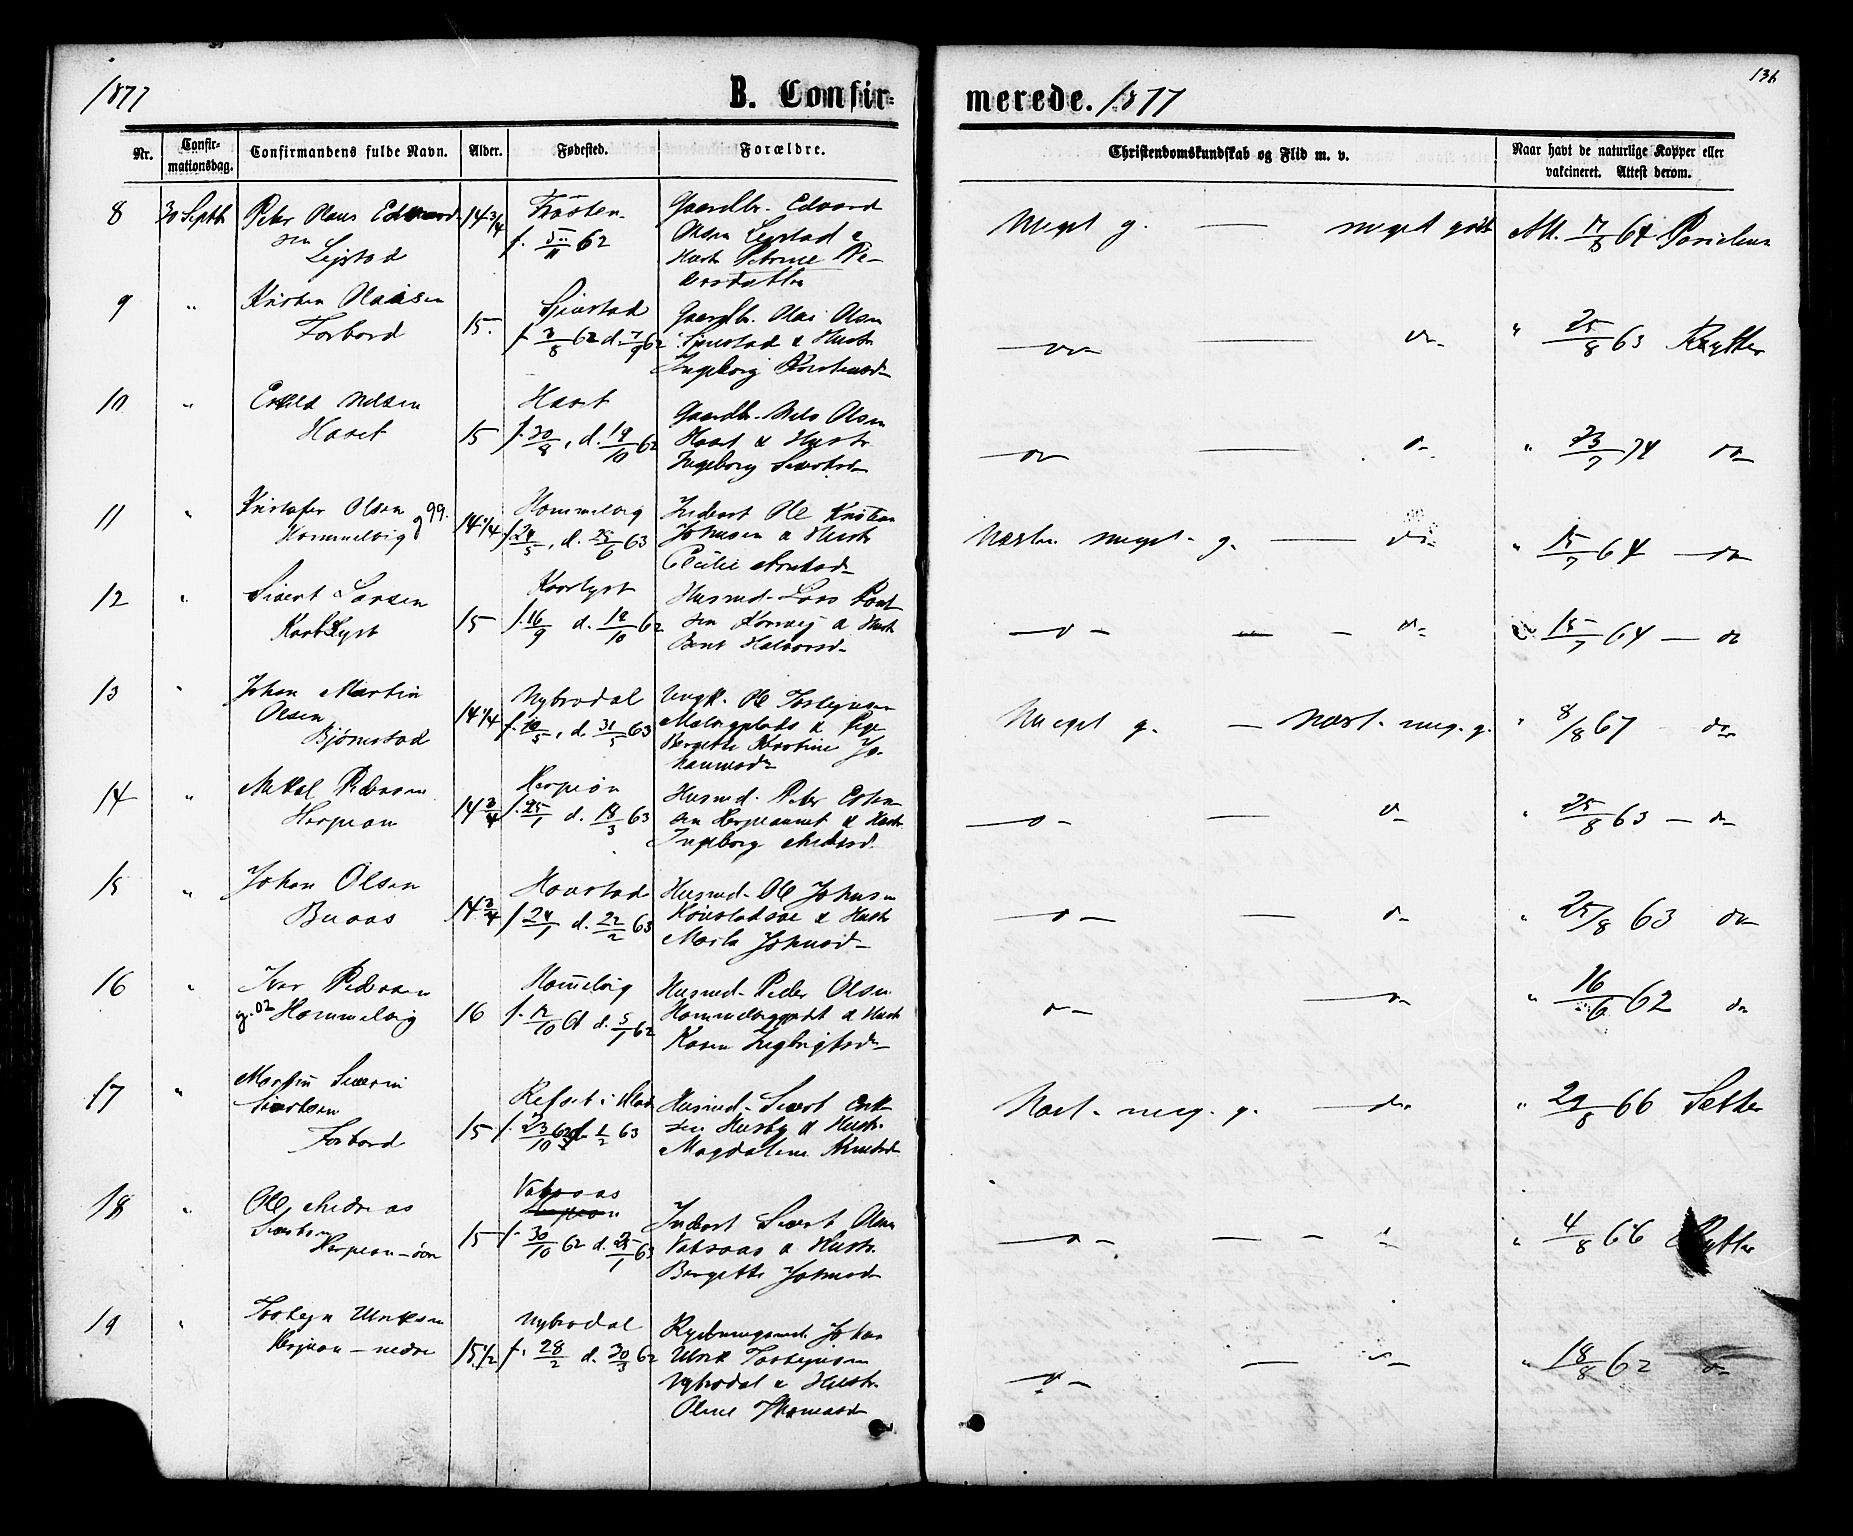 1877
B. Confirmerede. 1877
136
Nr.
Confirmationsdag.
Confirmandens fulde Navn.
Alder.
Fødested.
Forældre.
Christendomskundskab og Flid m. v.
Naar havt de naturlige Kopper eller
vakcineret. Attest derom.
8 30 Septb Peter Olaus Edvard
sen
Lejstad
14 3/4
f. 5/11 62
Gaardbr. Edvard
Olsen Lejstad &
Hustr. Petrine Pe-
dersdatter
Meget g. — meget godt
Att. 17/8 64
9 " Kristen Olaisen
Forbord
15.
Sjurstad
f. 3/8 62 d. 7/9 62
Gaardbr. Olai Olsen
Sjurstad & Hustr.
Ingeborg Kristensd.
do — do
" 25/8 63 Rytter
10 " Nilsen
Haset
15
Haset
f. 30/8, d. 19/10 62
Gaardbr. Nils Olsen
Haset & Hustr.
Ingeborg Sivertsd.
do — do
" 23/7 74 do
11 " Kristofer Olsen
Hommelvig g 99.
14 1/4
Hommelvig
f. 24/5, d. 25/6 63
Inderst Ole Kristian
Johnsen & Hustr.
Cecilie Arntsd.
Næsten meget g. — do
" 15/7 64 — do
12 " Sivert Larsen
Kortlyst
15
Kortlyst
f. 16/9 d. 19/10 62
Husmd. Lars Pont
sen & Hustr.
Berit Halvorsd.
do — do
" 15/7 64 — do
13 " Johan Martin
Olsen
Bjørnstad
14 1/4
Nybrodal
f. 10/5, d. 31/5 63
Ungk. Ole Tostejnsen
Malvigplads & Pige
Bergitte Kirstine Jo-
hannesd.
Meget g. — næst. meg. g.
" 8/8 67 do
14 " Mikal Pedersen
Herjeøn
14 3/4
Herjeøn
f. 25/1 d. 18/3 63
Husmd. Peder Esten
sen & Hustr.
Ingeborg Andersd.
do — do
" 25/8 63 — do
15 " Johan Olsen
Buaas
14 3/4
Hovstad
f. 24/1 d. 22/2 63
Husmd. Ole Johnsen
& Hustr.
Marta Johnsd.
do — do
" 25/8 63 do
16 " Iver Pedersen
g. 02 Hommelvig
16
Hommelvig
f. 12/10 61 d. 5/1 62
Husmd. Peder Olsen
& Hustr.
Karen Ingbrigtsd.
do — do
" 16/6 62 do
17 " Martin Severin
Sivertsen
Forbord
15
Refset i Hlad
f. 23/10 62 d. 1/2 63
Husmd. Sivert Erik
sen Husby & Hustr.
Magdalene Arntsd.
Næst. meg. g. — do
" 29/8 66 Sætter
18 " Ole Andreas
Sivertsen
Herjeøn-øvre
15
Vatsaas
f. 30/10 62 d. 25/1 63
Inderst Sivert Olsen
Vatsaas & Hustr.
Bergitte Johnsd.
do — — do
" 4/8 66 Rytter
19 " Tostejn Ulriksen
Herjeøn-nedre
15 1/2
Nybrodal
f. 28/2 d. 30/3 62
Rydningsmd. Johan
Ulrik Tostejnsen
Nybrodal & Hustr.
Oline Thomasd.
do — do
" 18/8 62 do